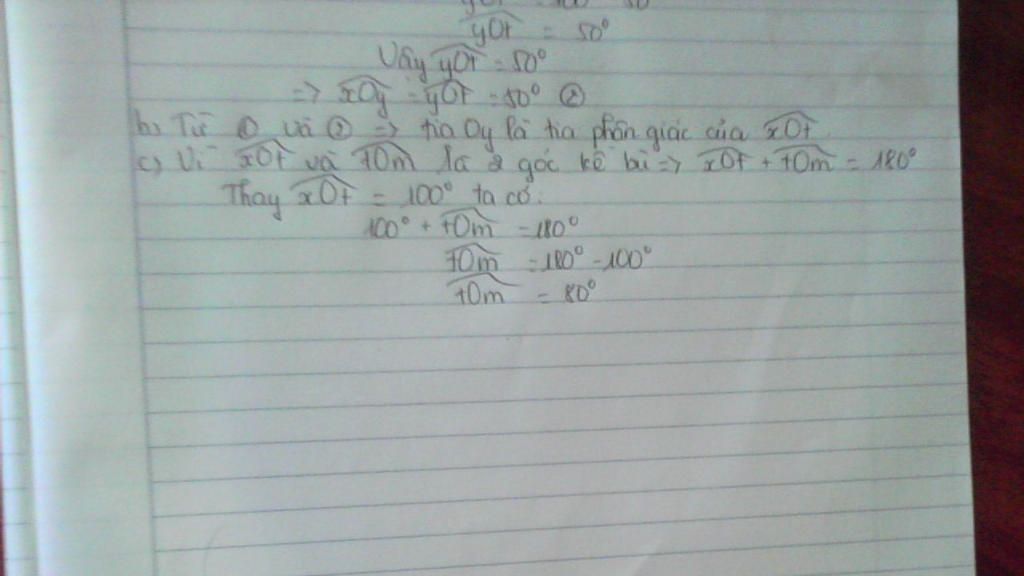 yOt = 50°
Vây yOt = 50°
=> xOy = yOt = 50° ②
b, Từ ① và ② => tia Oy là tia phân giác của xOt
c, Vì xOt và tOm là 2 góc kề bù => xOt + tOm = 180°
Thay xOt = 100° ta có:
100° + tOm = 180°
tOm = 180° - 100°
tOm = 80°